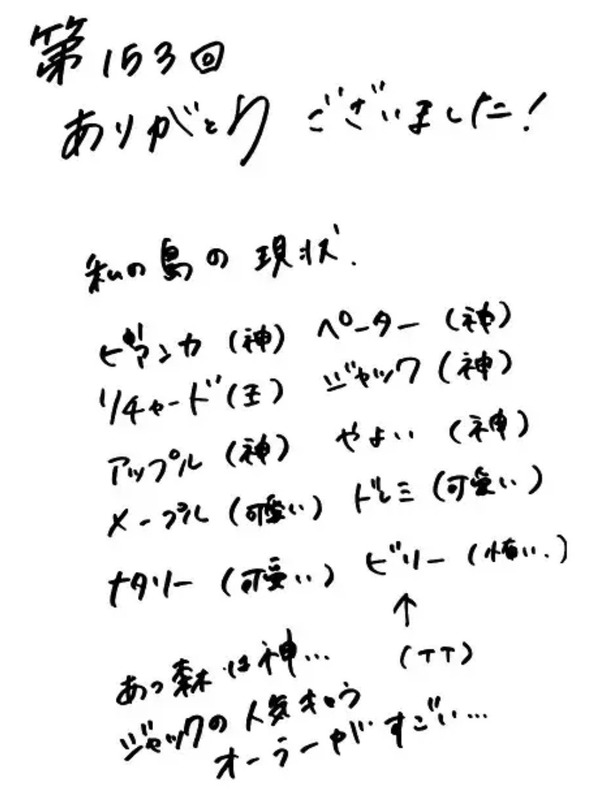 第153回
ありがとう ございました!
私の島の現状.
ビアンカ (神) ペーター (神)
リチャード (王) ジャック (神)
アップル (神) やよい (神)
メープル (可愛い) ドレミ (可愛い)
ナタリー (可愛い) ビリー (怖い.)
↑
(TT)
あつ森は神...
ジャックの人気
オーラーがすごい...